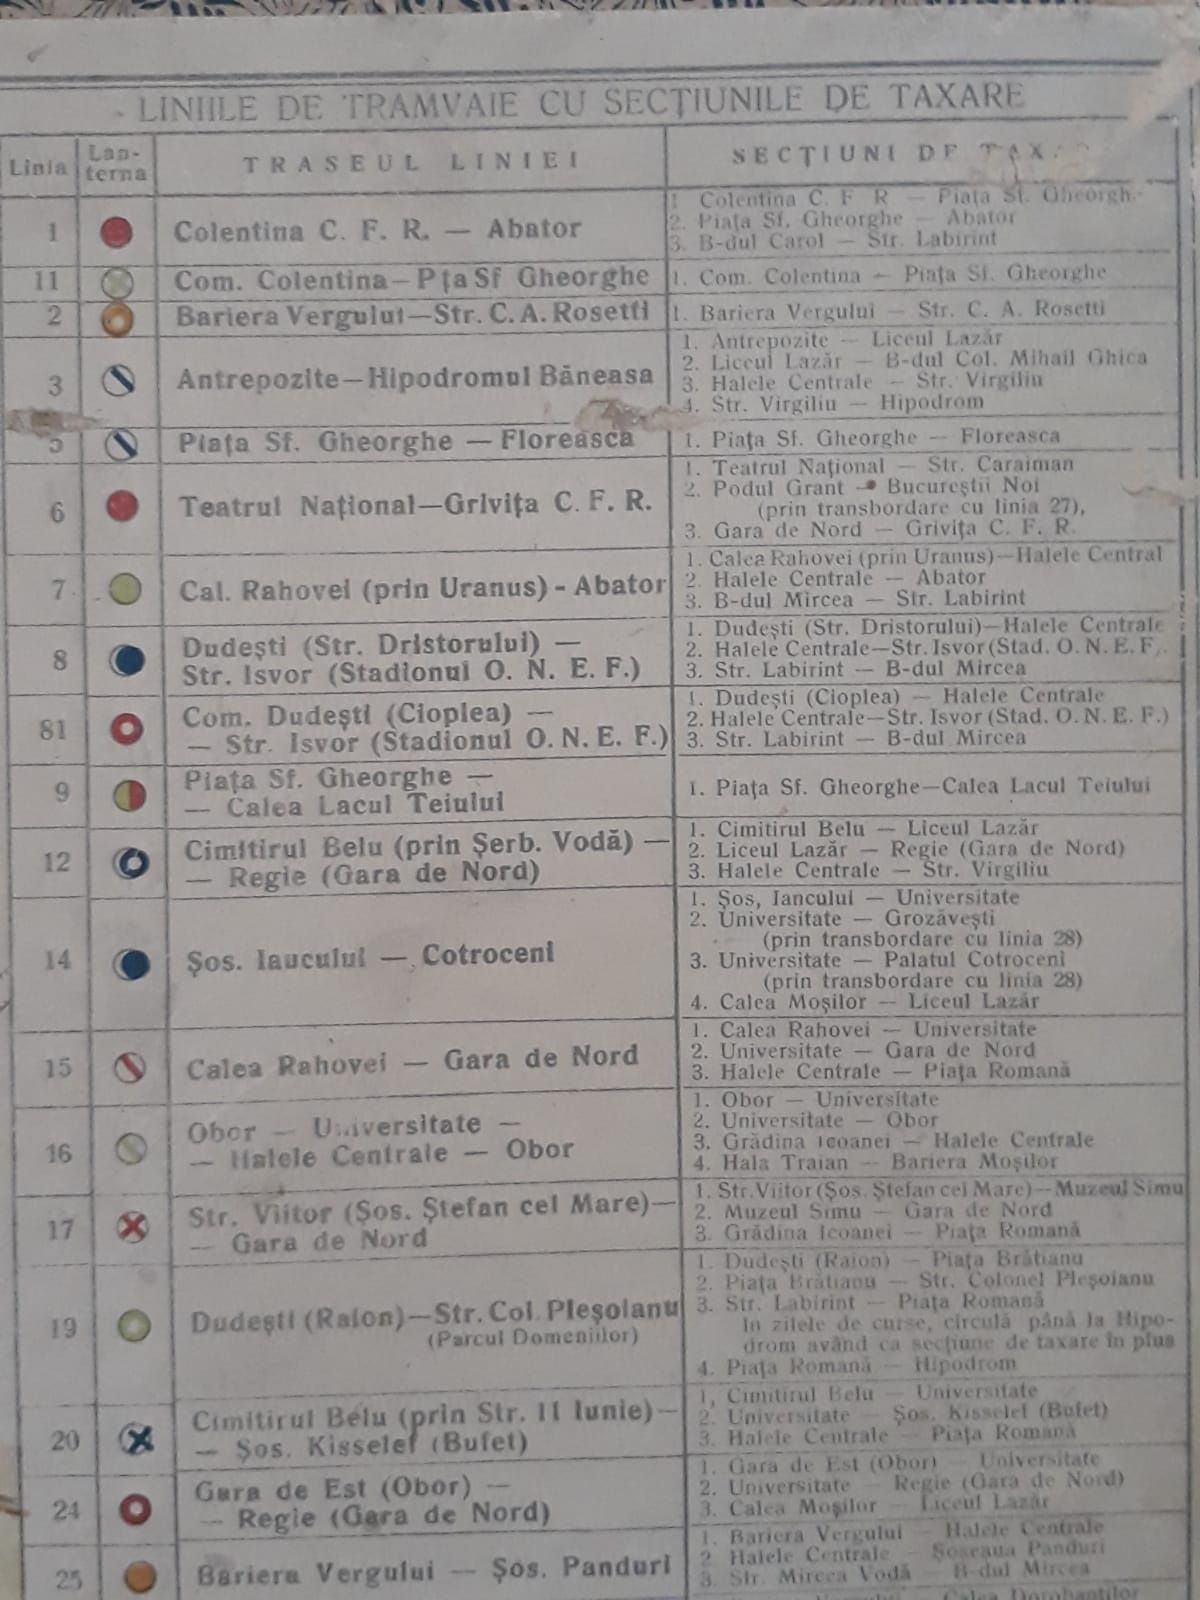 LINIILE DE TRAMVAIE CU SECȚIUNILE DE TAXARE
Linia
Lan-
terna
TRASEUL LINIEI
SECȚIUNI DE TAX
1
Colentina C. F. R. — Abator
1 Colentina C. F R — Piața Sf. Gheorgh.
2. Piața Sf. Gheorghe — Abator
3. B-dul Carol — Str. Labirint
11
Com. Colentina—Pța Sf Gheorghe
1. Com. Colentina — Piața Sf. Gheorghe
2
Bariera Vergului—Str. C. A. Rosetti
1. Bariera Vergului — Str. C. A. Rosetti
3
Antrepozite—Hipodromul Băneasa
1. Antrepozite — Liceul Lazăr
2. Liceul Lazăr — B-dul Col. Mihail Ghica
3. Halele Centrale — Str. Virgiliu
4. Str. Virgiliu — Hipodrom
5
Piața Sf. Gheorghe — Floreasca
1. Piața Sf. Gheorghe — Floreasca
6
Teatrul Național—Grivița C. F. R.
1. Teatrul Național — Str. Caraiman
2. Podul Grant — Bucureștii Noi
(prin transbordare cu linia 27),
3. Gara de Nord — Grivița C. F. R.
7
Cal. Rahovei (prin Uranus) - Abator
1. Calea Rahovei (prin Uranus)—Halele Central
2. Halele Centrale — Abator
3. B-dul Mircea — Str. Labirint
8
Dudești (Str. Dristorului) —
Str. Isvor (Stadionul O. N. E. F.)
1. Dudești (Str. Dristorului)—Halele Centrale
2. Halele Centrale—Str. Isvor (Stad. O. N. E. F.
3. Str. Labirint — B-dul Mircea
81
Com. Dudești (Cioplea) —
— Str. Isvor (Stadionul O. N. E. F.)
1. Dudești (Cioplea) — Halele Centrale
2. Halele Centrale—Str. Isvor (Stad. O. N. E. F.)
3. Str. Labirint — B-dul Mircea
9
Piața Sf. Gheorghe —
— Calea Lacul Teiului
1. Piața Sf. Gheorghe—Calea Lacul Teiului
12
Cimitirul Belu (prin Șerb. Vodă) —
— Regie (Gara de Nord)
1. Cimitirul Belu — Liceul Lazăr
2. Liceul Lazăr — Regie (Gara de Nord)
3. Halele Centrale — Str. Virgiliu
14
Șos. Iaucului — Cotroceni
1. Șos, Iancului — Universitate
2. Universitate — Grozăvești
(prin transbordare cu linia 28)
3. Universitate — Palatul Cotroceni
(prin transbordare cu linia 28)
4. Calea Moșilor — Liceul Lazăr
15
Calea Rahovei — Gara de Nord
1. Calea Rahovei — Universitate
2. Universitate — Gara de Nord
3. Halele Centrale — Piața Romană
16
Obor — Universitate —
— Halele Centrale — Obor
1. Obor — Universitate
2. Universitate — Obor
3. Grădina Icoanei — Halele Centrale
4. Hala Traian — Bariera Moșilor
17
Str. Viitor (Șos. Ștefan cel Mare)—
— Gara de Nord
1. Str. Viitor (Șos. Ștefan cel Mare)—Muzeul Simu
2. Muzeul Simu — Gara de Nord
3. Grădina Icoanei — Piața Romană
19
Dudești (Raion)—Str. Col. Pleșoianu
(Parcul Domeniilor)
1. Dudești (Raion) — Piața Brătianu
2. Piața Brătianu — Str. Colonel Pleșoianu
3. Str. Labirint — Piața Romană
In zilele de curse, circulă până la Hipo-
drom având ca secțiune de taxare în plus
4. Piața Romană — Hipodrom
20
Cimitirul Belu (prin Str. 11 Iunie)—
— Șos. Kisselef (Bufet)
1, Cimitirul Belu — Universitate
2. Universitate — Șos. Kisselef (Bufet)
3. Halele Centrale — Piața Romană
24
Gara de Est (Obor) —
— Regie (Gara de Nord)
1. Gara de Est (Obor) — Universitate
2. Universitate — Regie (Gara de Nord)
3. Calea Moșilor — Liceul Lazăr
25
Bariera Vergului — Șos. Panduri
1. Bariera Vergului — Halele Centrale
2 Halele Centrale — Șoseaua Panduri
3. Str. Mircea Vodă — B-dul Mircea
Calea Dorobanților